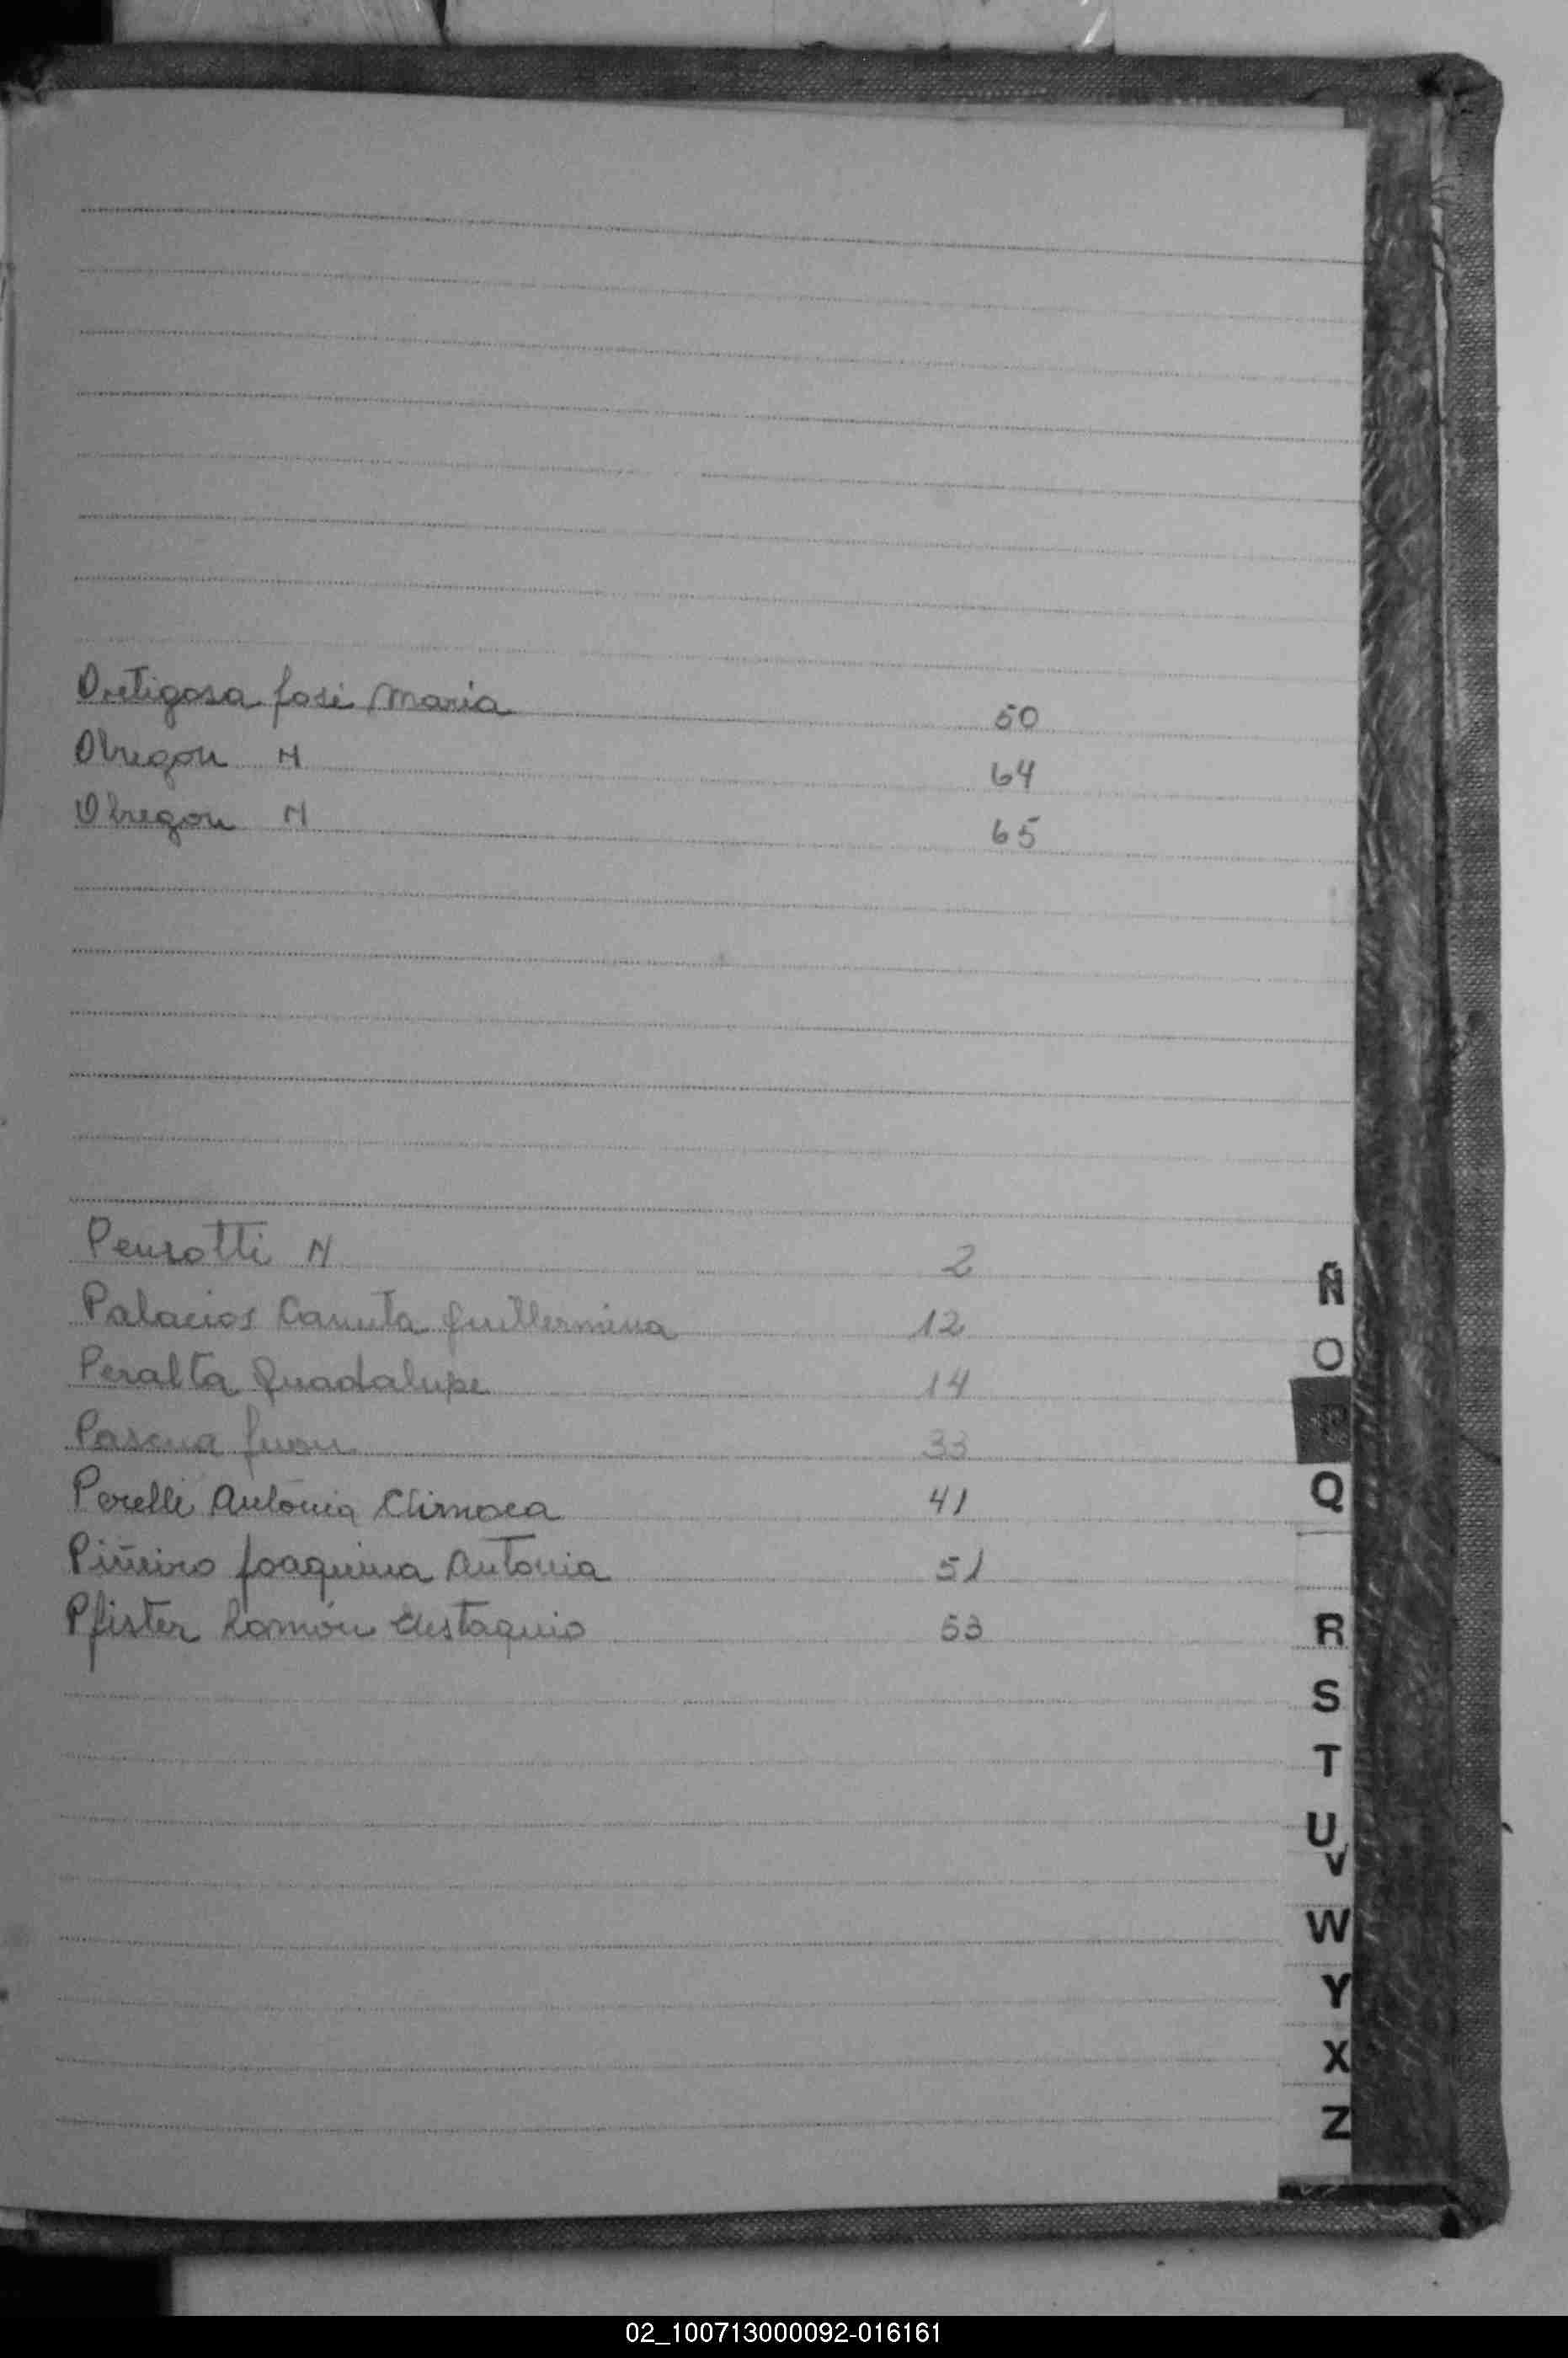 Ortigosa José Maria 50
Obregon N 64
Obregon N 65
Pensotti N 2
Palacios Canuta Guillermina 12
Peralta Guadalupe 14
Pascua Juan 33
Perelli Antonia 41
Piñeiro Joaquina Antonia 51
Pfister Ramón Eustaquio 53
Ñ
O
P
Q
R
S
T
U
V
W
Y
X
Z
02_100713000092-016161